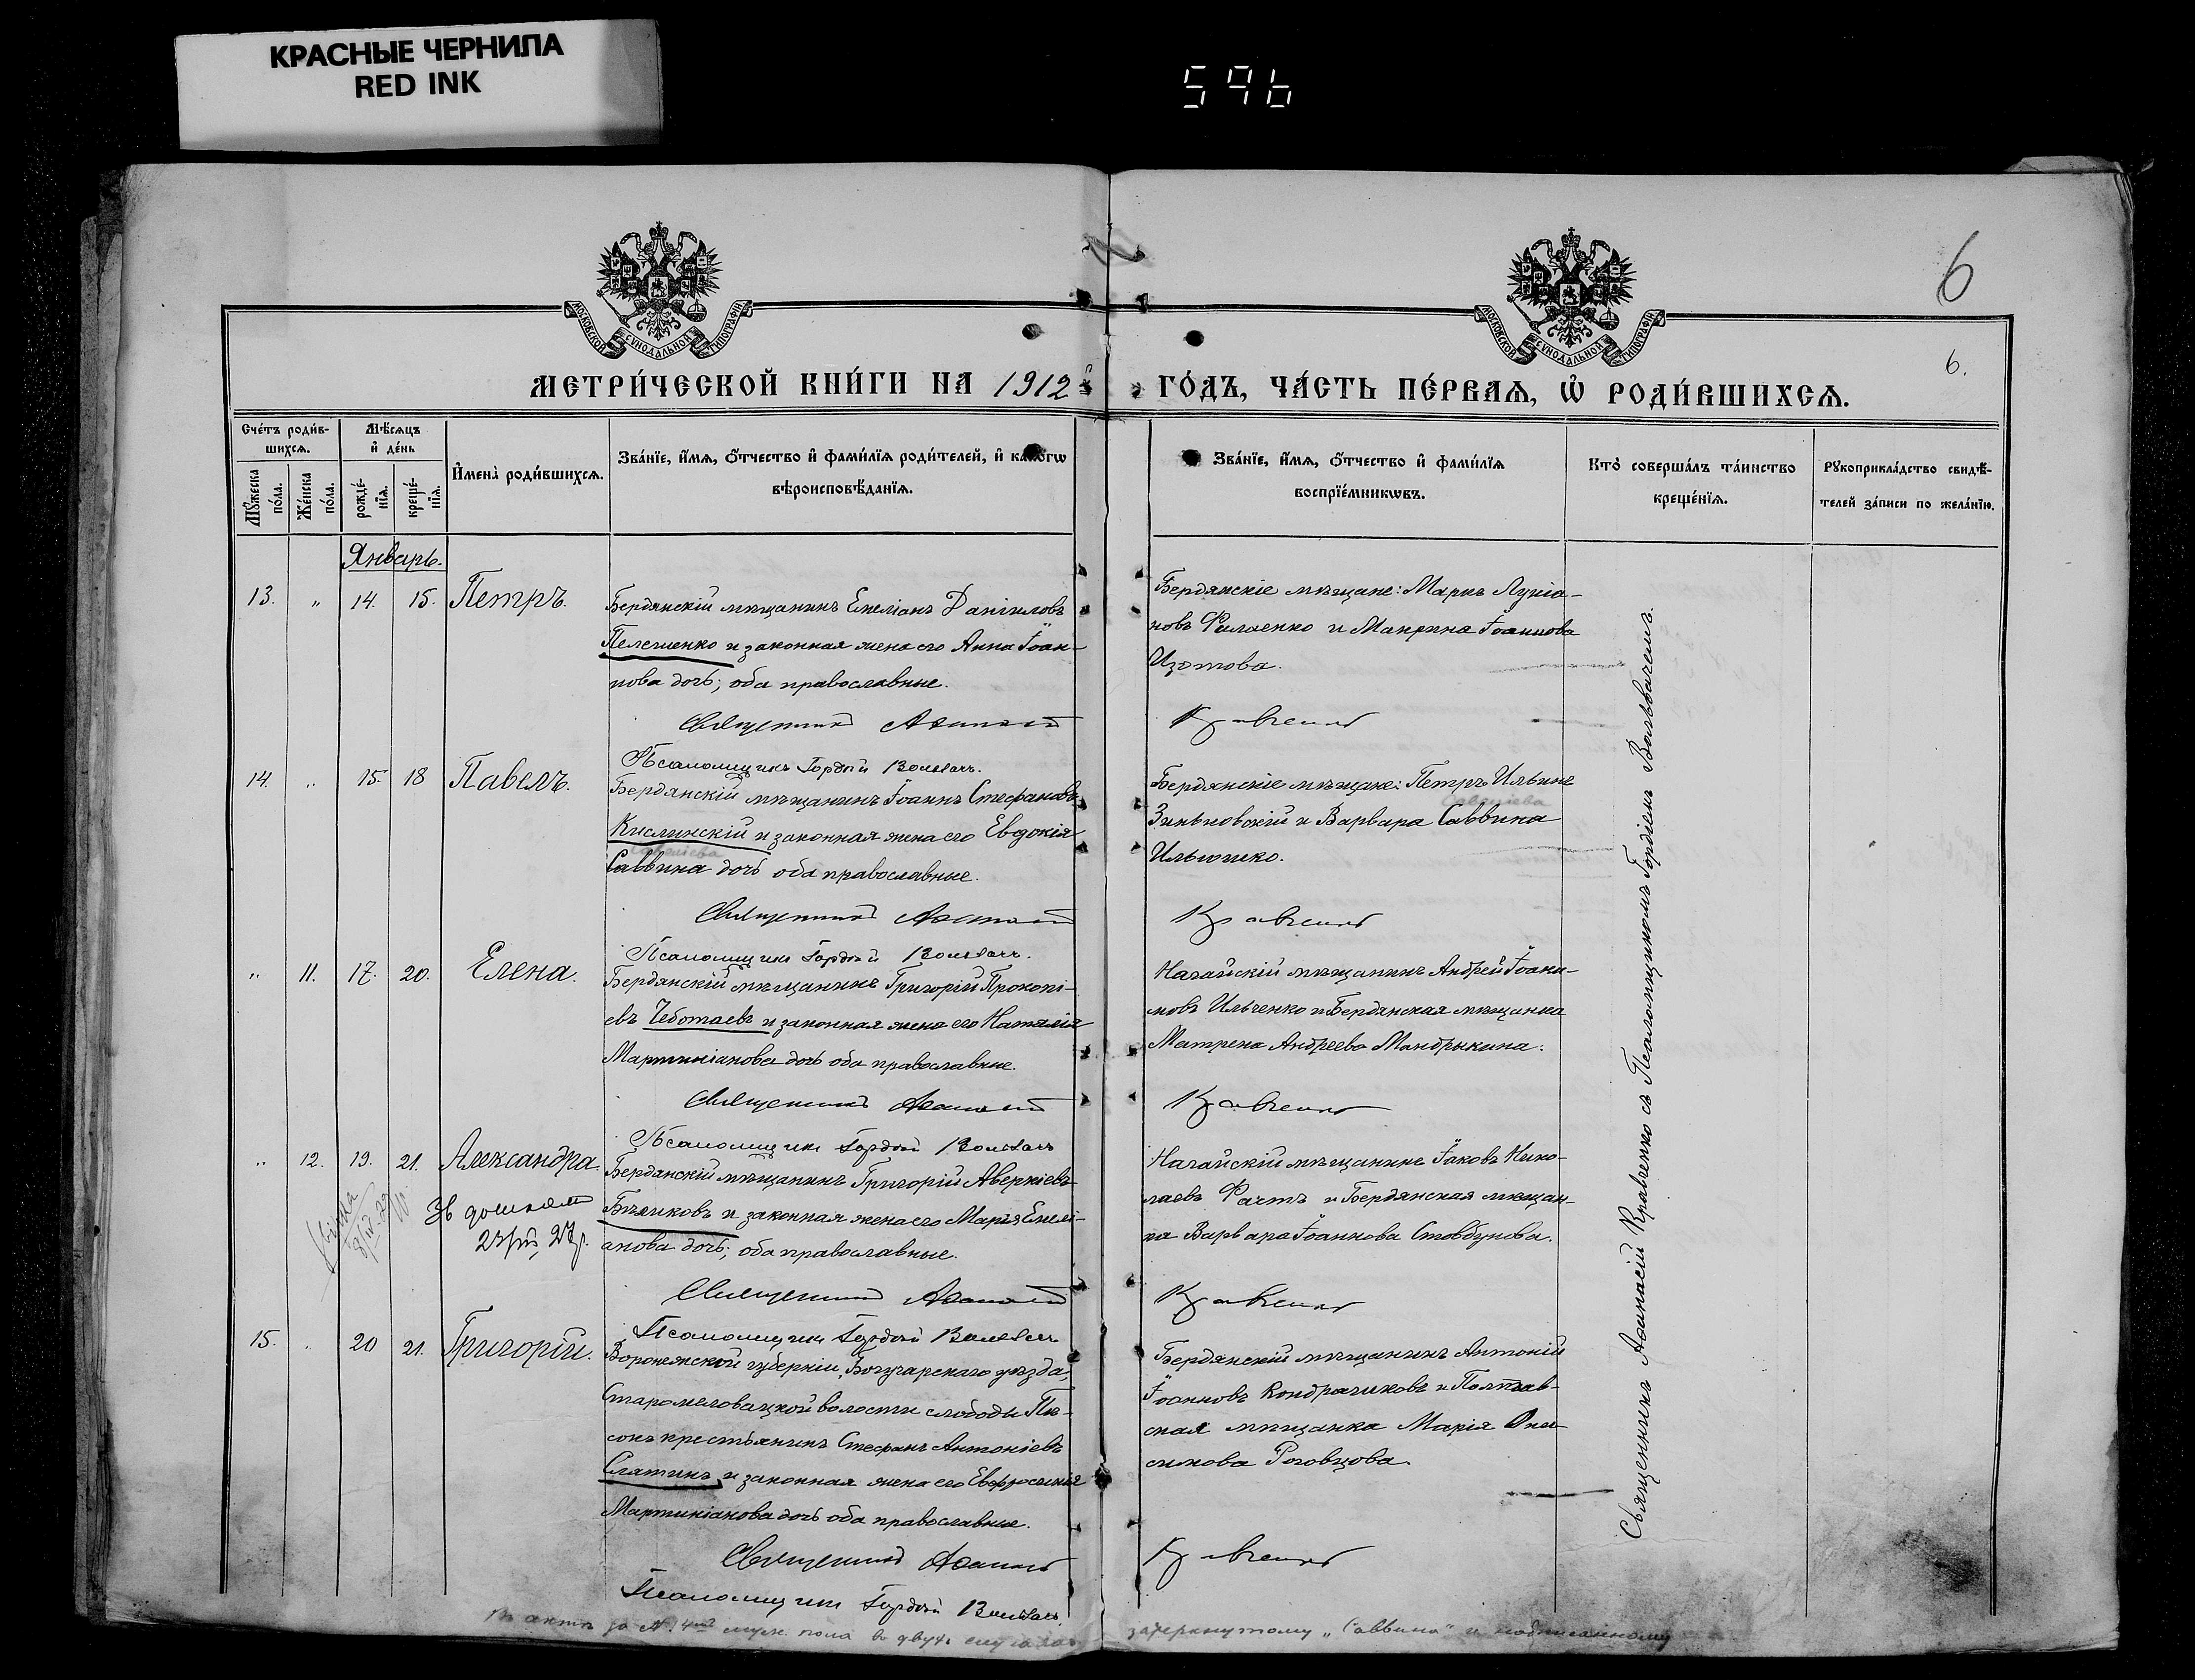 КРАСНЫЕ ЧЕРНИЛА
RED INK
596
6
6.
МОСКОВСКОЙ СѴНОДАЛЬНОЙ ТИПОГРАФІИ
МОСКОВСКОЙ СѴНОДАЛЬНОЙ ТИПОГРАФІИ
МЕТРИ́ЧЕСКОЙ КНИ́ГИ НА 1912
ГО́ДЪ, ЧА́СТЬ ПЕ́РВАѦ, Ѡ҆ РОДИ́ВШИХСѦ.
Сче́тъ роди́в-
шихсѧ.
Мѣ́сѧцъ
и҆ де́нь
Мꙋ́жеска по́ла.
Же́нска по́ла.
рожде́-
нїѧ.
креще́-
нїѧ.
И҆мена̀ роди́вшихсѧ.
Зва́нїе, и҆́мѧ, ѻ҆́тчество и҆ фами́лїѧ роди́телей, и҆ како́гѡ
вѣроисповѣ́данїѧ.
Зва́нїе, и҆́мѧ, ѻ҆́тчество и҆ фами́лїѧ
воспрїе́мникѡвъ.
Кто̀ соверша́лъ та́инство
креще́нїѧ.
Рꙋкоприкла́дство свидѣ́-
телей за́писи по жела́нїю.
Январь.
13. " 14. 15. Петръ.
Бердянскій мѣщанинъ Емеліанъ Даніиловъ
Пелешенко и законная жена его Анна Іоан-
нова дочь; оба православные.
Священникъ Аѳанасій
Псаломщикъ Гордій
Бердянскіе мѣщане: Маркъ Лукіа-
новъ Филаенко и Макрина Іоаннова
Изотова.
Кравченко
14. " 15. 18 Павелъ.
Бердянскій мѣщанинъ Іоаннъ Стефановъ
Кислинскій и законная жена его Евдокія
Саввина дочь оба православные.
Священникъ Аѳанасій
Псаломщикъ Гордій
Бердянскіе мѣщане: Петръ Ильинъ
Зиньковскій и Варвара Саввина
Ильюшко.
Кравченко
" 11. 17. 20. Елена.
Бердянскій мѣщанинъ Григорій Прокопі-
евъ Чеботаевъ и законная жена его Наталія
Мартиніанова дочь оба православные.
Священникъ Аѳанасій
Псаломщикъ Гордій
Ногайскій мѣщанинъ Андрей Іоаки-
мовъ Ильченко и Бердянская мѣщанка
Матрена Андреева Мандрыкина.
Кравченко
" 12. 19. 21. Александра.
Бердянскій мѣщанинъ Григорій Аверкіевъ
Бѣликовъ и законная жена его Марія Емелі-
анова дочь; оба православные.
Священникъ Аѳанасій
Псаломщикъ Гордій
Ногайскій мѣщанинъ Іаковъ Нико-
лаевъ Фастъ и Бердянская мѣщан-
ка Варвара Іоаннова Стовбунова.
Кравченко
15. " 20 21. Григорій.
Воронежской губерніи, Богучарскаго уѣзда,
Старомеловацкой волости слободы Пѣ-
сокъ крестьянинъ Стефанъ Антоніевъ
Слатинъ и законная жена его Евфросинія
Мартиніанова дочь оба православные.
Священникъ Аѳанасій
Псаломщикъ Гордій
Бердянскій мѣщанинъ Антоній
Іоанновъ Кондрашковъ и Полтав-
ская мѣщанка Марія Они-
симова Роговцова.
Кравченко
Священникъ Аѳанасій Кравченко съ Псаломщикомъ Гордіемъ
Въ актѣ за № 14 муж. пола въ двухъ случаяхъ зачеркнутому „Саввина" и надписанному